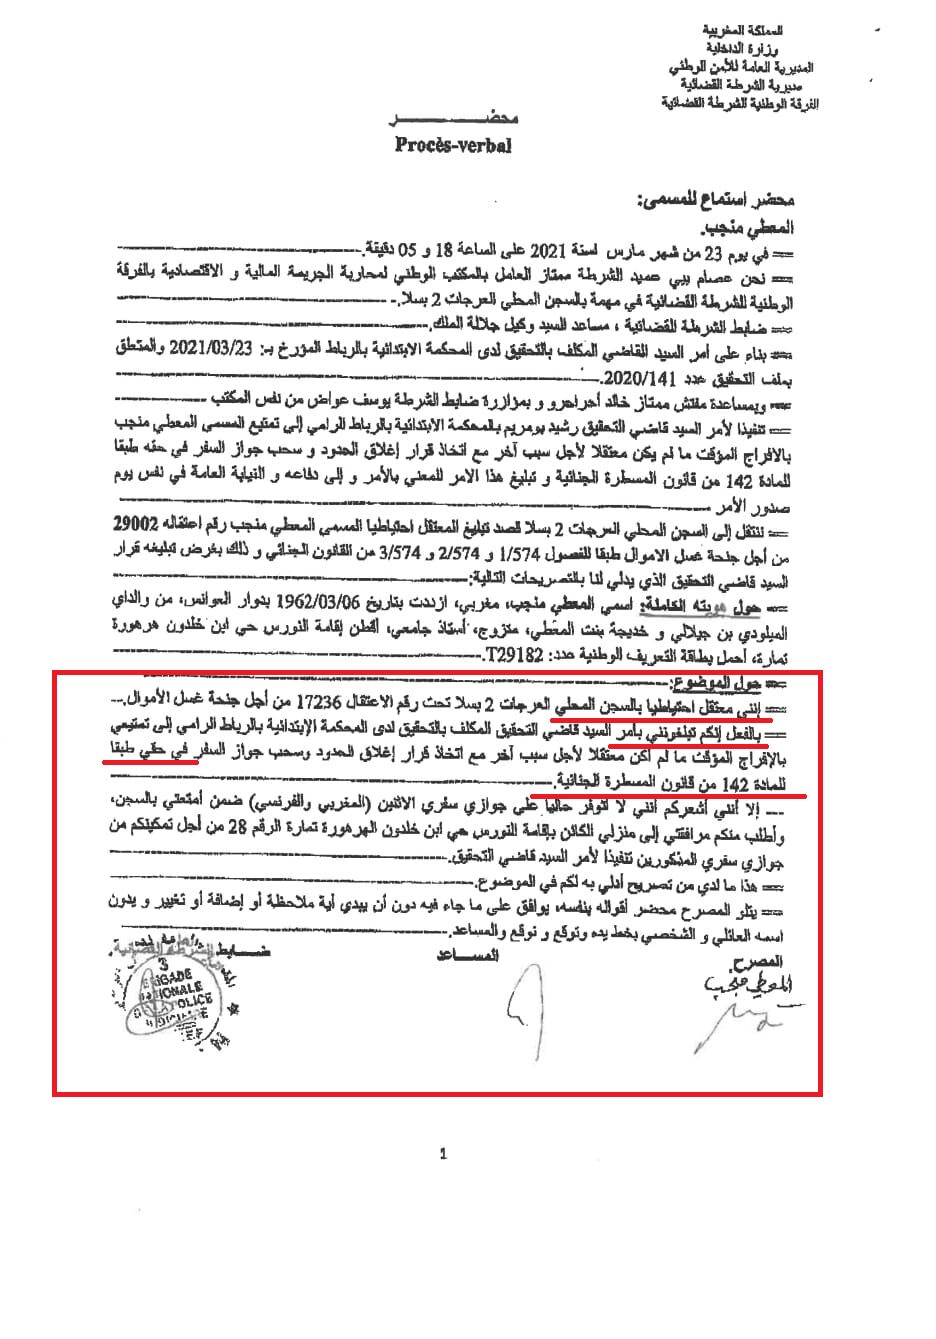 المملكة المغربية
وزارة الداخلية
المديرية العامة للأمن الوطني
مديرية الشرطة القضائية
الفرقة الوطنية للشرطة القضائية
محضـــــــــــر
Procès-verbal
محضر استماع للمسمى:
المعطي منجب.
== في يوم 23 من شهر مارس لسنة 2021 على الساعة 18 و 05 دقيقة.
== نحن عصام بيي عميد الشرطة ممتاز العامل بالمكتب الوطني لمحاربة الجريمة المالية و الاقتصادية بالفرقة
الوطنية للشرطة القضائية في مهمة بالسجن المحلي العرجات 2 بسلا.
== ضابط الشرطة القضائية ، مساعد السيد وكيل جلالة الملك.
== بناء على أمر السيد القاضي المكلف بالتحقيق لدى المحكمة الابتدائية بالرباط المؤرخ بـ: 2021/03/23 والمتعلق
بملف التحقيق عدد 2020/141.
== وبمساعدة مفتش ممتاز خالد أجراحرو و بمؤازرة ضابط الشرطة يوسف عواض من نفس المكتب
== تنفيذا لأمر السيد قاضي التحقيق رشيد بومريم بالمحكمة الابتدائية بالرباط الرامي إلى تمتيع المسمى المعطي منجب
بالافراج المؤقت ما لم يكن معتقلا لأجل سبب آخر مع اتخاذ قرار إغلاق الحدود و سحب جواز السفر في حقه طبقا
للمادة 142 من قانون المسطرة الجنائية و تبليغ هذا الامر للمعني بالأمر و إلى دفاعه و النيابة العامة في نفس يوم
صدور الأمر
== ننتقل إلى السجن المحلي العرجات 2 بسلا قصد تبليغ المعتقل احتياطيا المسمى المعطي منجب رقم اعتقاله 29002
من أجل جنحة غسل الاموال طبقا للفصول 1/574 و 2/574 و 3/574 من القانون الجنائي و ذلك بغرض تبليغه قرار
السيد قاضي التحقيق الذي يدلي لنا بالتصريحات التالية:
== حول هويته الكاملة: اسمي المعطي منجب، مغربي، ازددت بتاريخ 1962/03/06 بدوار العوانس، من والداي
الميلودي بن جيلالي و خديجة بنت المعطي، متزوج، أستاذ جامعي، أقطن إقامة النورس حي ابن خلدون هرهورة
تمارة، أحمل بطاقة التعريف الوطنية عدد: T29182.
== حول الموضوع:
== إنني معتقل احتياطيا بالسجن المحلي العرجات 2 بسلا تحت رقم الاعتقال 17236 من أجل جنحة غسل الأموال.
== بالفعل إنكم تبلغونني بأمر السيد قاضي التحقيق المكلف بالتحقيق لدى المحكمة الإبتدائية بالرباط الرامي إلى تمتيعي
بالإفراج المؤقت ما لم أكن معتقلا لأجل سبب آخر مع اتخاذ قرار إغلاق الحدود وسحب جواز السفر في حقي طبقا
للمادة 142 من قانون المسطرة الجنائية.
--- إلا أنني أشعركم أنني لا أتوفر حاليا على جوازي سفري الاثنين (المغربي والفرنسي) ضمن أمتعتي بالسجن،
وأطلب منكم مرافقتي إلى منزلي الكائن بإقامة النورس حي ابن خلدون الهرهورة تمارة الرقم 28 من أجل تمكينكم من
جوازي سفري المذكورين تنفيذا لأمر السيد قاضي التحقيق.
== هذا ما لدي من تصريح أدلي به لكم في الموضوع.
== يتلو المصرح محضر أقواله بنفسه، يوافق على ما جاء فيه دون أن يبدي أية ملاحظة أو إضافة أو تغيير و يدون
اسمه العائلي و الشخصي بخط يده ونوقع و نوقع والمساعد.
المصرح. المســـاعد ضـــابط الشرطة القضائية
المعطي منجب
3
BRIGADE
NATIONALE
POLICE
1